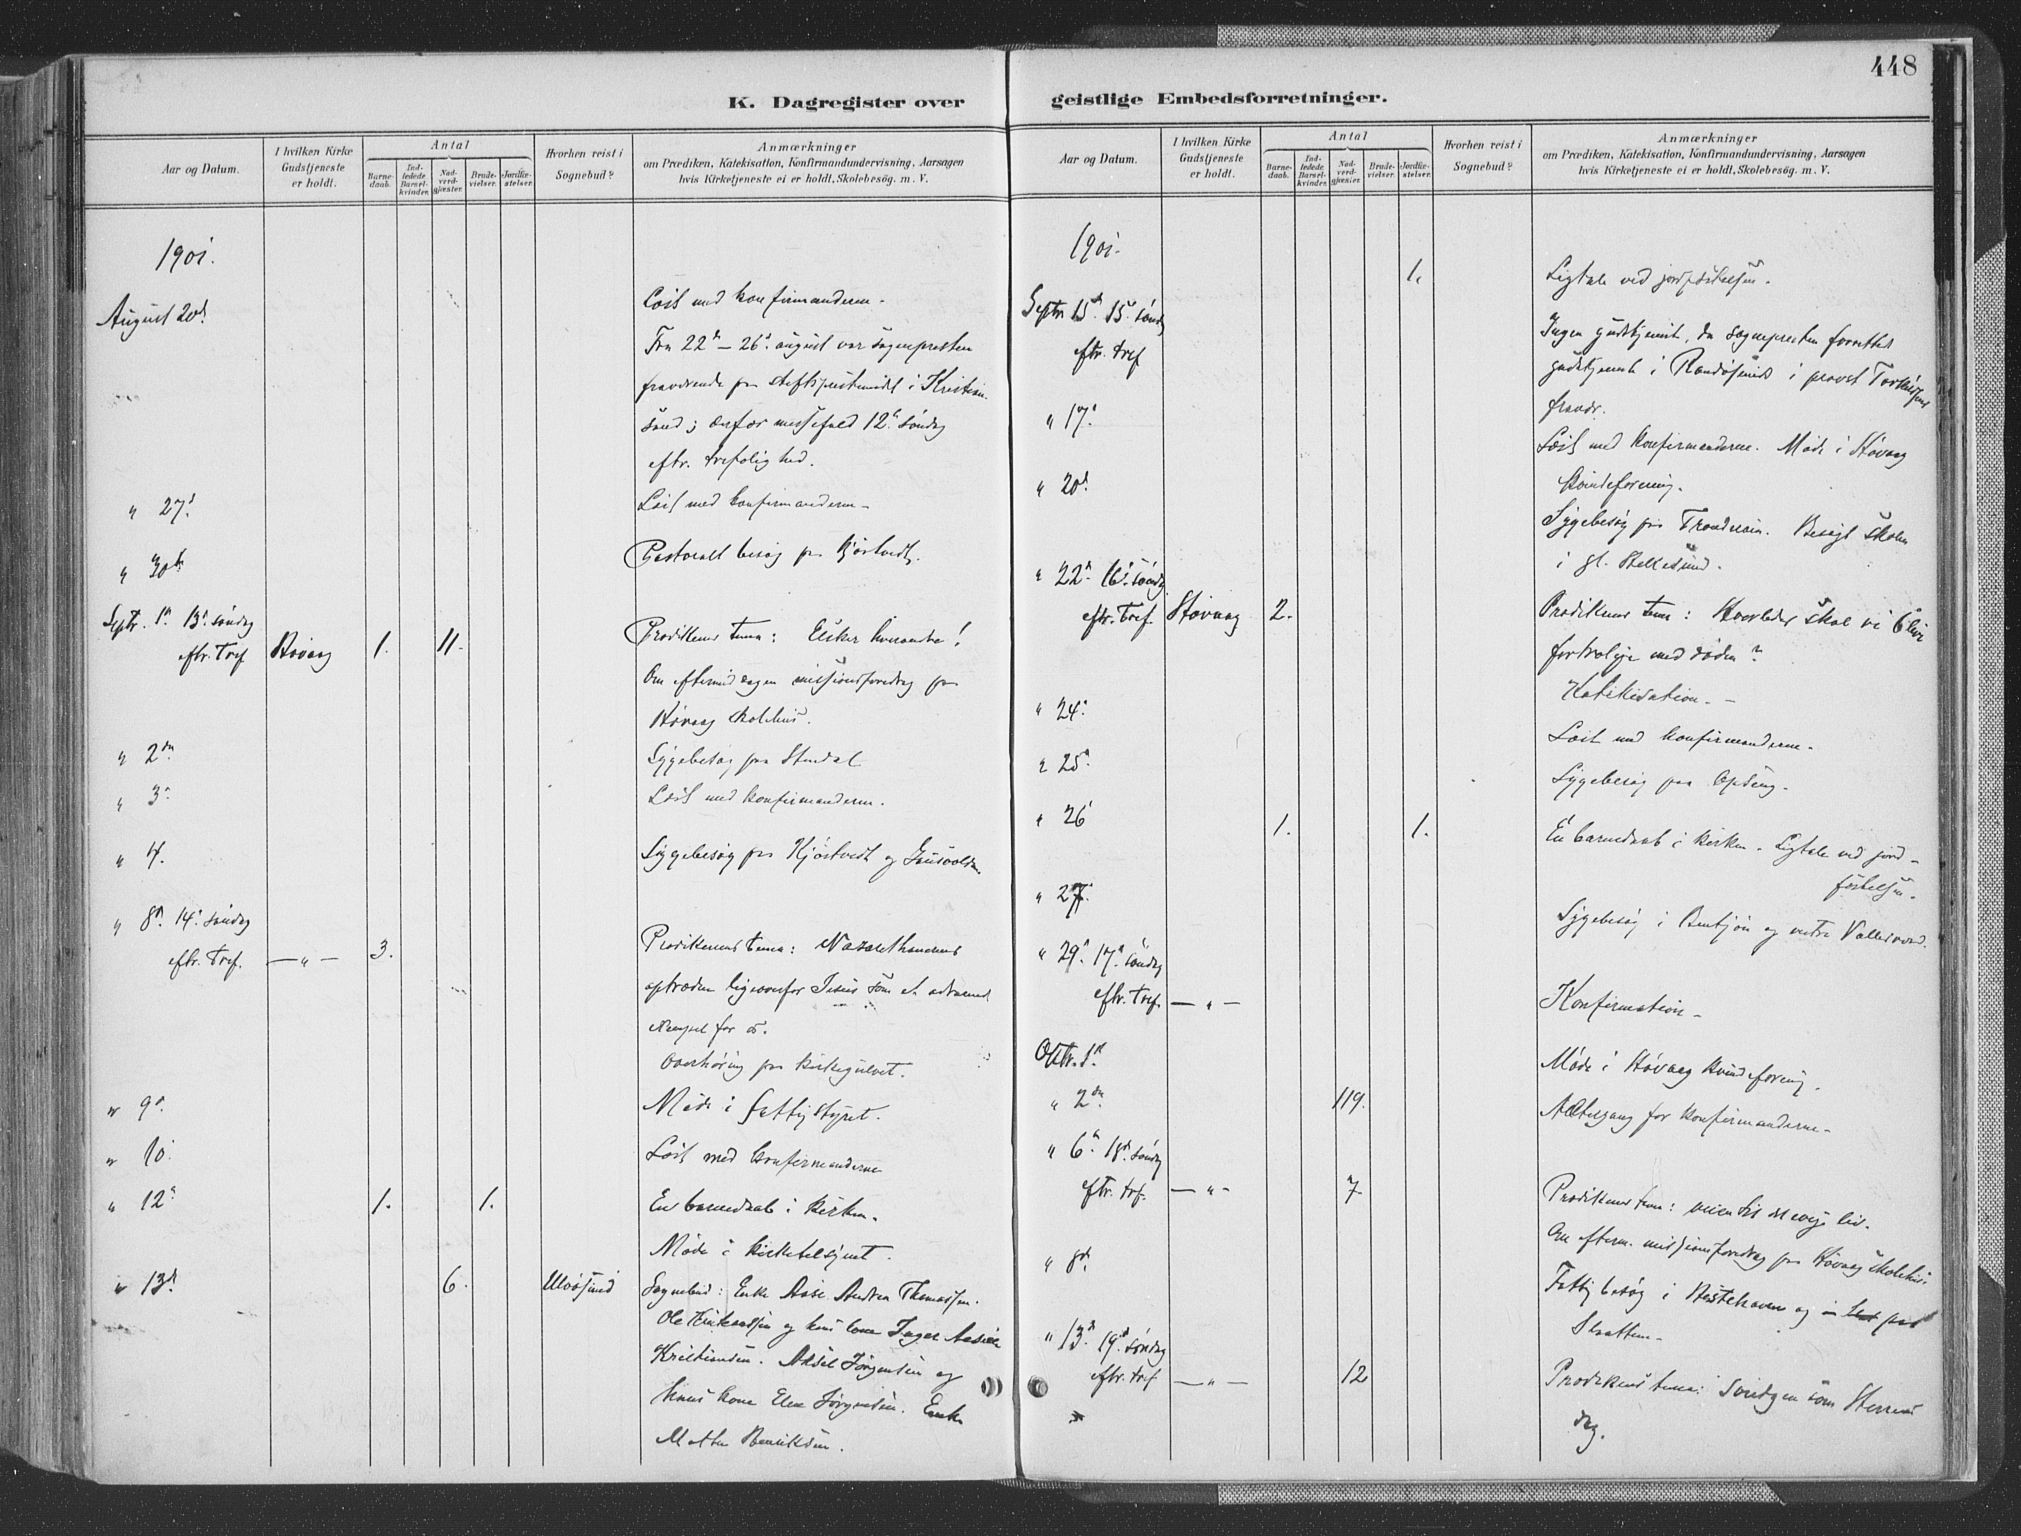 448
K. Dagregister over
Aar og Datum.
I hvilken Kirke Gudstjeneste er holdt.
Antal
Barnedaab.
Indledede Barselkvinder.
Nadverdgjæster.
Brudevielser.
Jordfæstelser.
Hvorhen reist i Sognebud?
Anmærkninger
om Prædiken, Katekisation, Konfirmandundervisning, Aarsagen
hvis Kirketjeneste ei er holdt, Skolebesøg. m. V.
1901.
August 20d.
Læst med konfirmanderne.
Fra 22d – 26d. august var sognepresten
fraværende paa stiftsprestemødet i Kristian-
sand; derfor messefald 12te søndag
eftr. trefolighed.
" 27d
Læst med konfirmanderne
" 30te
Pastoralt besøg paa Kjøstvedt.
Septr. 1ste 13de søndag
eftr. Tref Høvaag 1. 11.
Prædikenens tema: Elsker hverandre!
Om eftermiddagen missionsforedrag paa
Høvaag skolehus.
" 2den
Sygebesøg paa Stendal
" 3.
Læst med konfirmanderne.
" 4.
Sygebesøg paa Kjøstvedt og
" 8d. 14d. søndag
eftr. Tref. — " — 3.
Prædikenens tema: Nazarethanernes
optræden ligeoverfor Jesus som et advarende
eksempel for os.
Overhøring paa kirkegulvet.
" 9d.
Møde i fattigstyret.
" 10.
Læst med konfirmanderne
" 12d 1. 1.
En barnedaab i kirken.
Møde i kirketilsynet.
" 13d. 6. Ulvøsund
Sognebud: Enke Aase Andrea Thomassen.
Ole Eriksen og hans kone Inger
Kristiansen. Aksel Jørgensen og
hans kone Elen Jørgensen. Enke
Mette Henriksen.
geistlige Embedsforretninger.
Aar og Datum.
I hvilken Kirke Gudstjeneste er holdt.
Antal
Barnedaab.
Indledede Barselkvinder.
Nadverdgjæster.
Brudevielser.
Jordfæstelser.
Hvorhen reist i Sognebud?
Anmærkninger
om Prædiken, Katekisation, Konfirmandundervisning, Aarsagen
hvis Kirketjeneste ei er holdt, Skolebesøg. m. V.
1901.
1. Ligtale ved jordfæstelsen.
Septr 15d 15d. søndag
eftr. tref
Ingen gudstjeneste, da sognepresten forrettet
gudstjeneste i Randøsund i provst
fravær.
" 17d
Læst med konfirmanderne. Møde i Høvaag
kvindeforening.
" 20d
Sygebesøg paa Besøgt skolen
i gl. Hellesund.
" 22d. 16d. søndag
eftr. Tref. Høvaag 2.
Prædikenens tema: Hvorledes skal vi blive
fortrolige med døden?
Katekisation. –
" 24d.
Læst med konfirmanderne.
" 25d.
Sygebesøg paa
" 26d 1. 1.
En barnedaab i kirken. Ligtale ved jord-
fæstelsen.
" 27d.
Sygebesøg i og Vallesværd.
" 29d. 17d. søndag
eftr. Tref. — " —
Konfirmation.
Oktr. 1st.
Møde i Høvaag kvindeforening.
" 2den 119.
Altergang for konfirmanderne.
" 6te 18d. søndag
eftr. tref. — " — 7
Prædikenens tema: veien til det evige liv.
Om efterm. missionsforedrag paa Høvaag skolehus.
" 8d.
Fattigbesøg i Hestehaven og paa
" 13d 19d søndag
eftr. tref — " — 12
Prædikenens tema: Søndagen som Herrens
dag.